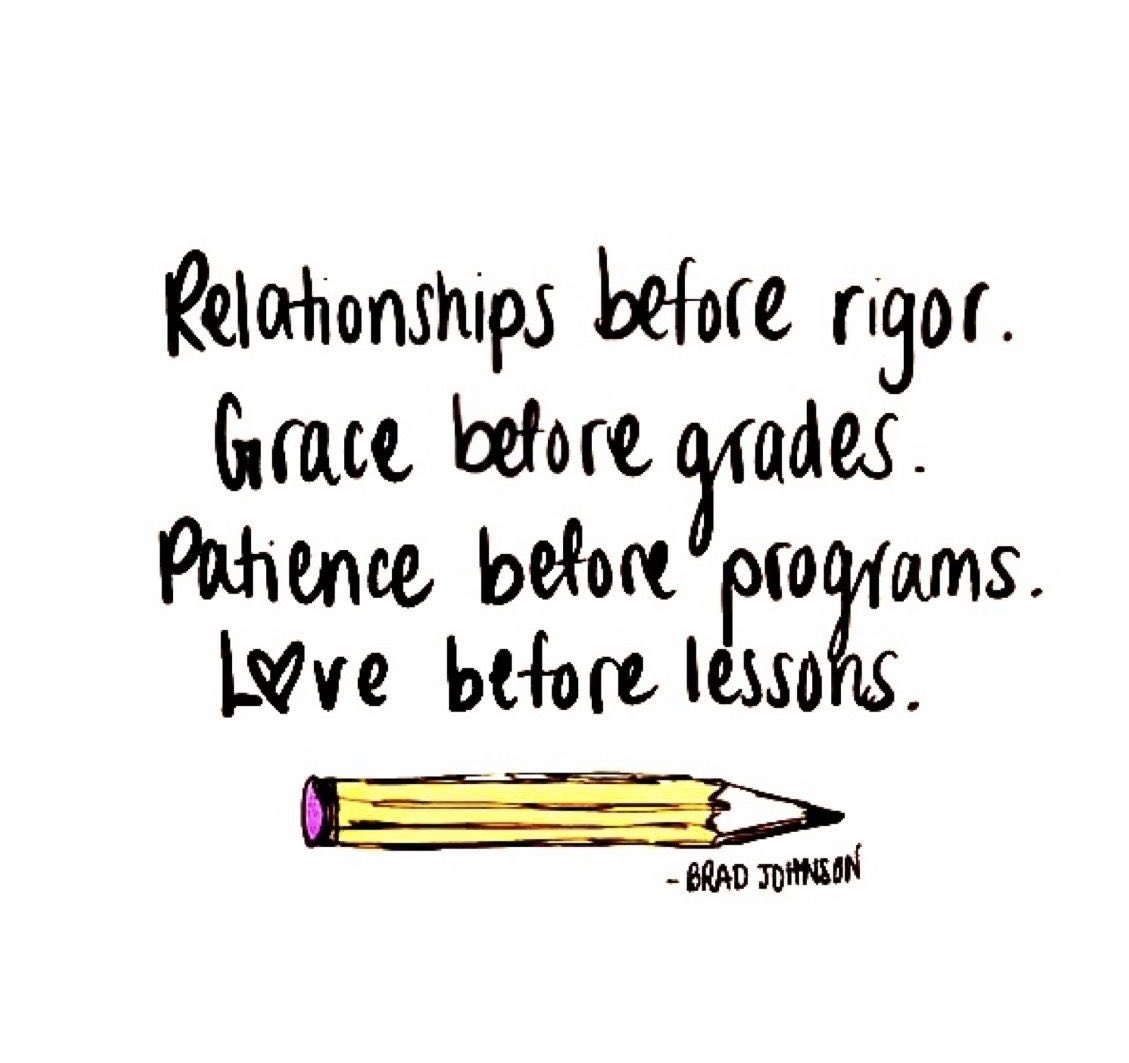 Relationships before rigor.
Grace before grades.
Patience before programs.
Love before lessons.
- BRAD JOHNSON